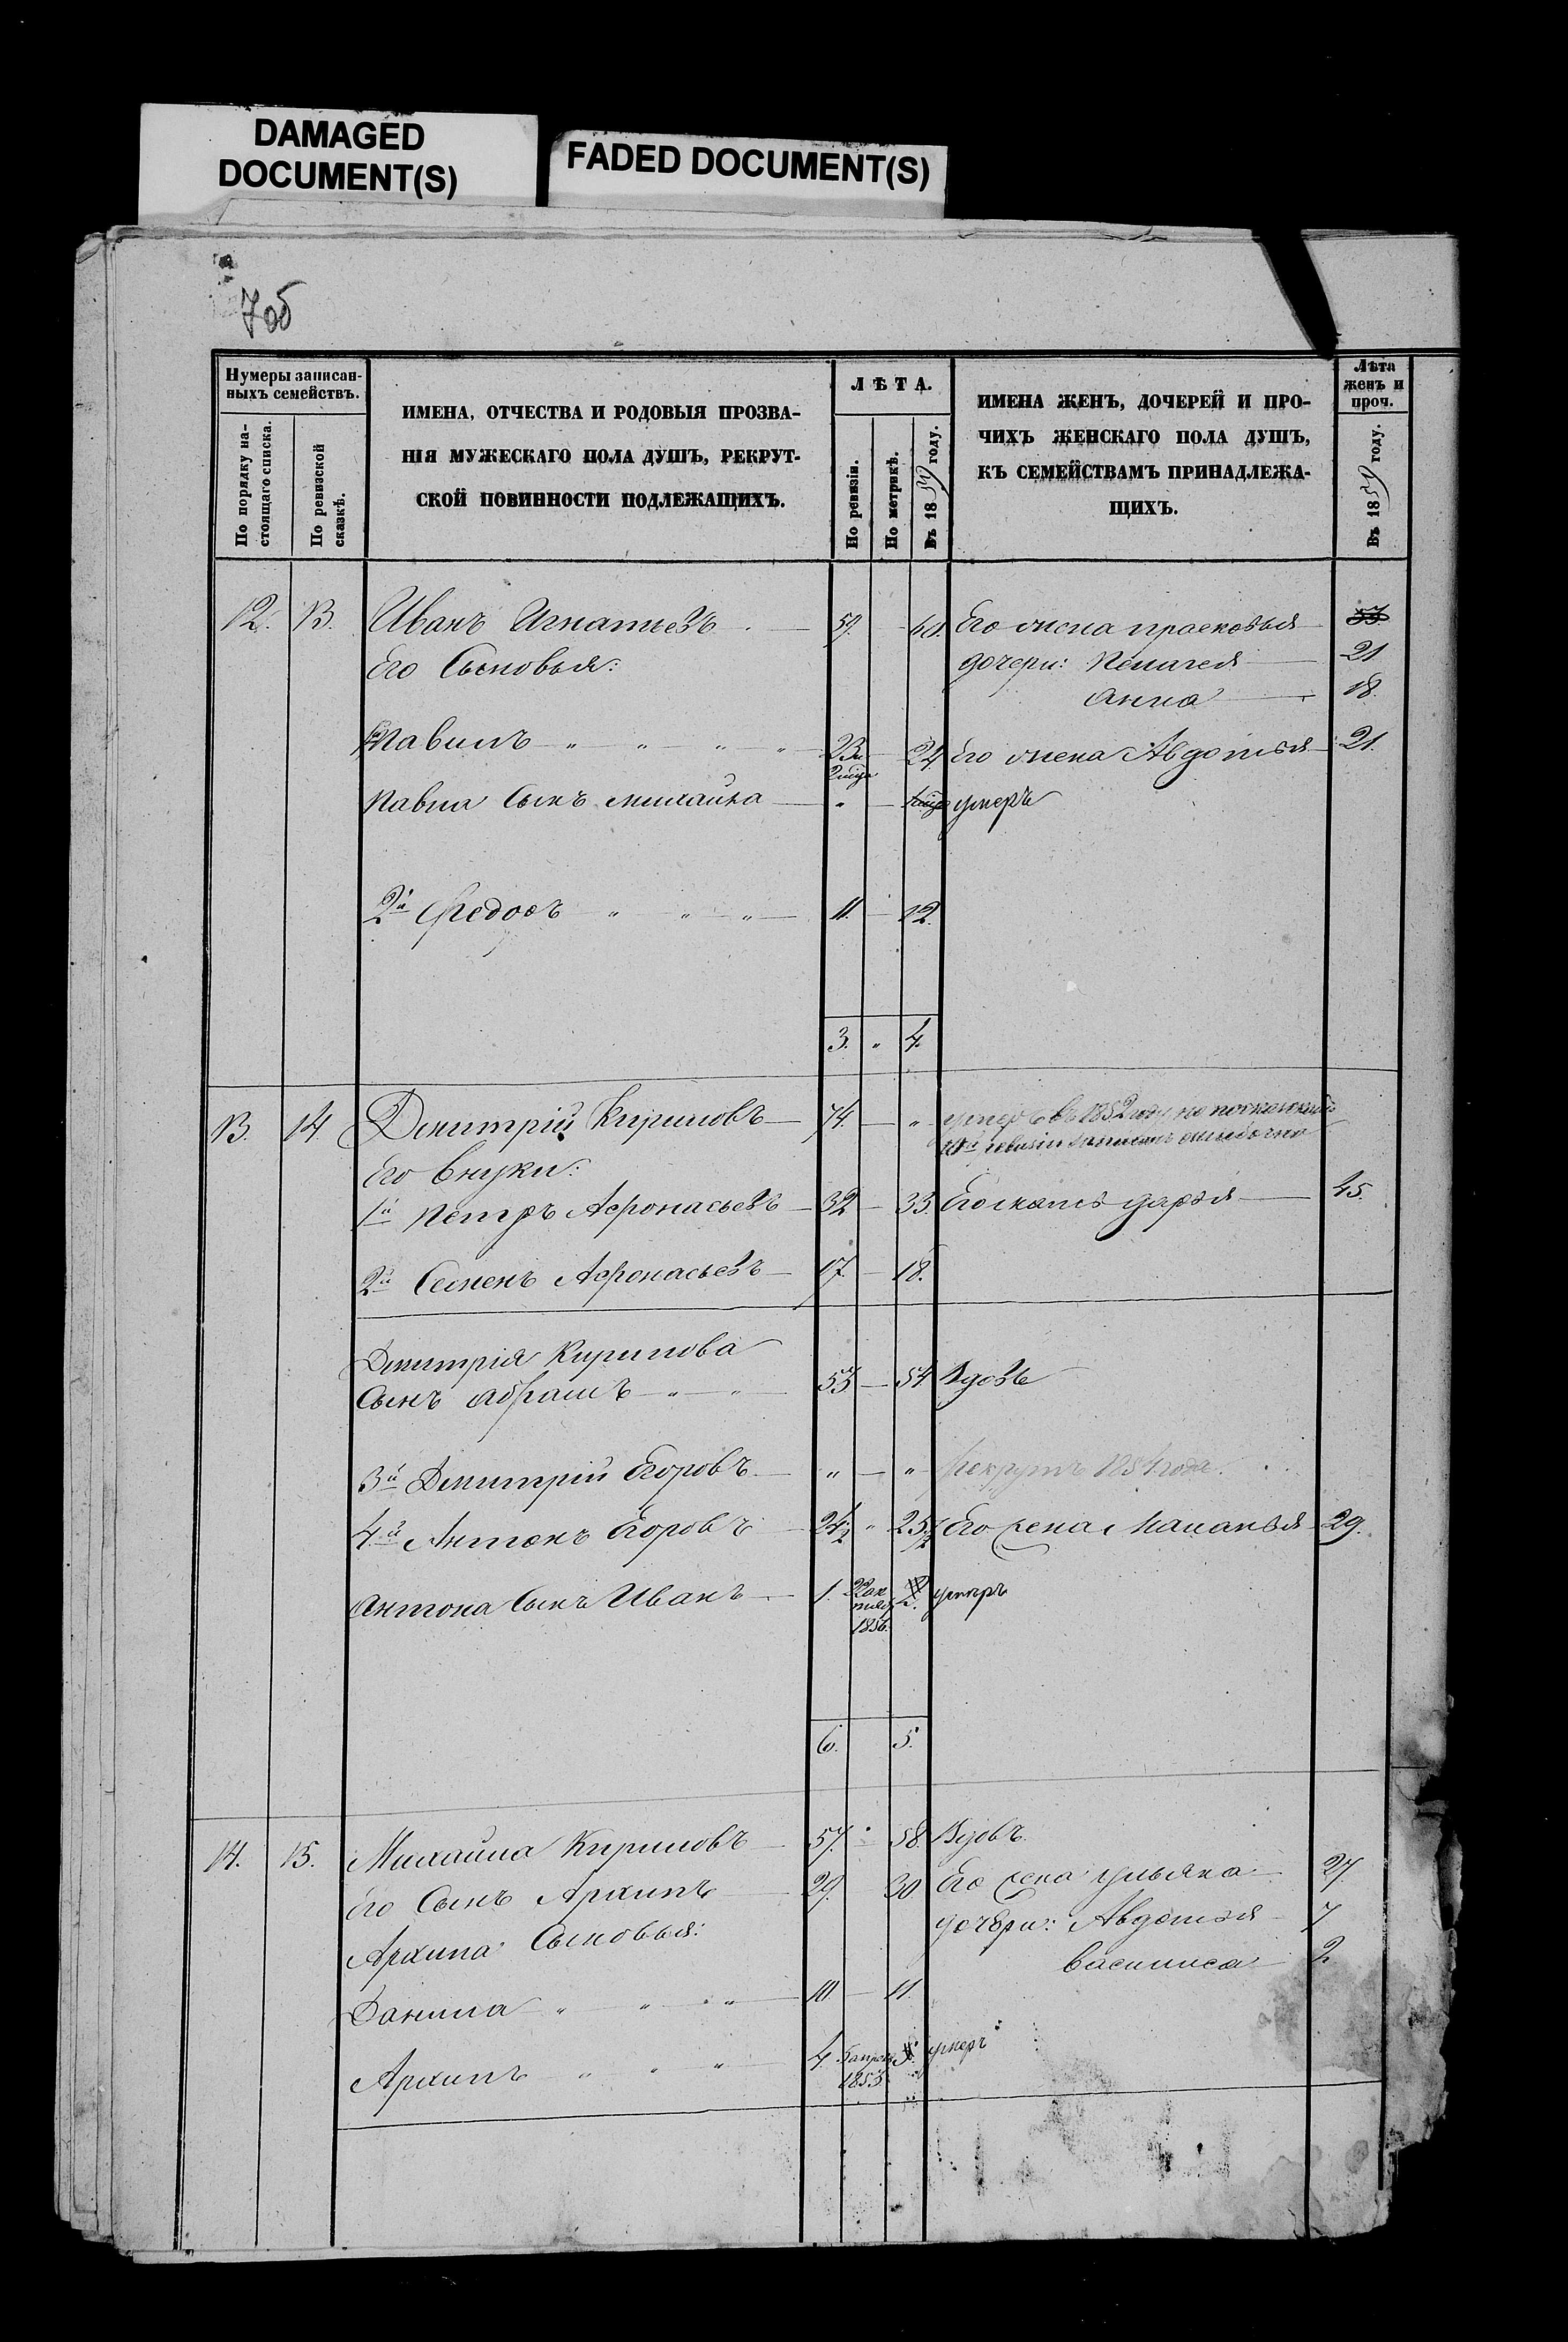 DAMAGED
DOCUMENT(S)
FADED DOCUMENT(S)
7об
Нумеры записан-
ныхъ семействъ.
По порядку на-
стоящаго списка.
По ревизской
сказкѣ.
ИМЕНА, ОТЧЕСТВА И РОДОВЫЯ ПРОЗВА-
НІЯ МУЖЕСКАГО ПОЛА ДУШЪ, РЕКРУТ-
СКОЙ ПОВИННОСТИ ПОДЛЕЖАЩИХЪ.
ЛѢТА.
По ревизіи.
По метрикѣ.
Въ 1859 году.
ИМЕНА ЖЕНЪ, ДОЧЕРЕЙ И ПРО-
ЧИХЪ ЖЕНСКАГО ПОЛА ДУШЪ,
КЪ СЕМЕЙСТВАМЪ ПРИНАДЛЕЖА-
ЩИХЪ.
Лѣта
женъ и
проч.
Въ 1859 году.
12. 13. Иванъ Игнатьевъ 59. 60. Его жена прасковья 53
Его Сыновья: дочери: Пелагея 21
Анна 18.
1й Павилъ 23 24 Его жена Авдотья 21.
Павла Сынъ михайла умеръ
2й Федоръ 11. 12.
3. 4.
13. 14. Дмитрій Кириловъ 74. умеръ въ 1852 году но
10й ревизіи записанъ ошибочно
Его внуки:
1й Петръ Афонасьевъ 32 33. Его мать дарья 45.
2й Семенъ Афонасьевъ 17. 18.
Дмитрія Кирилова
Сынъ абрамъ 53 54 Вдовъ
3й Дмитрій Егоровъ рекрутъ 1854 года.
4й Антонъ Егоровъ 24½ 25½ Его жена Маланья 29.
Антона Сынъ Иванъ 1. 1856. 2. умеръ
6. 5.
14. 15. Михайла Кириловъ 57. 58. Вдовъ.
Его Сынъ Архипъ 29. 30 Его жена ульяна 27.
Архипа Сыновья: дочери: Авдотья 7
василиса 2
Данила 10 11.
Архипъ 4 1853. 5. умеръ